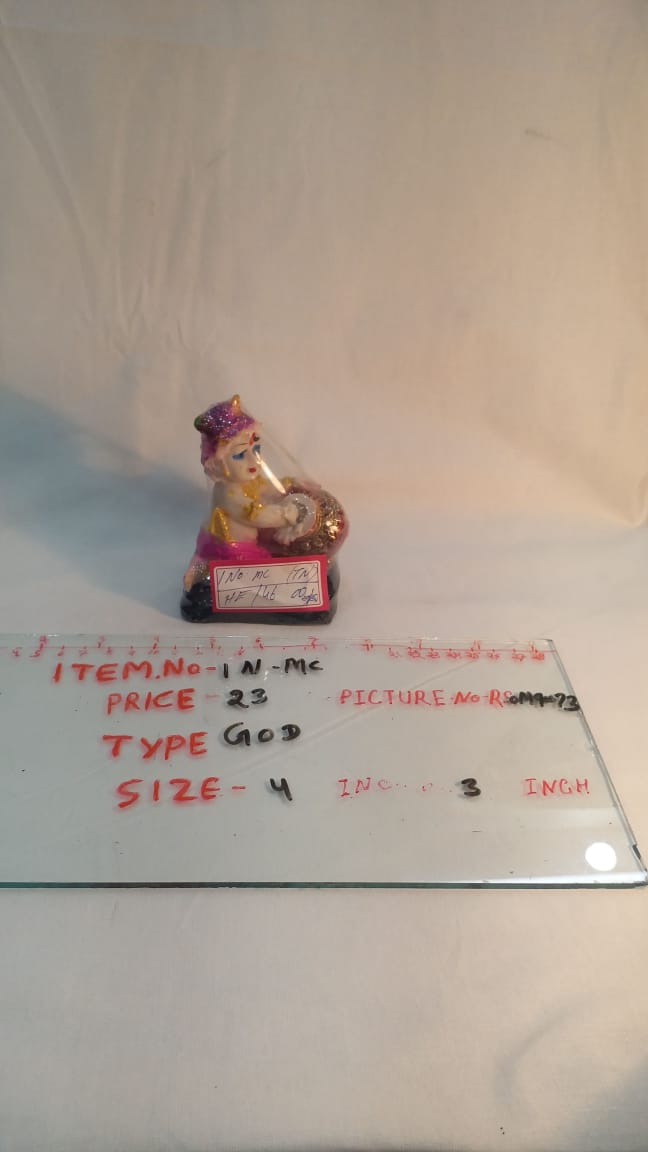 1 No MC (TN)
HF / 46
ITEM.No-1 N-MC
PRICE - 23 PICTURE-No-R
TYPE GOD
SIZE - 4 INC 3 INCH